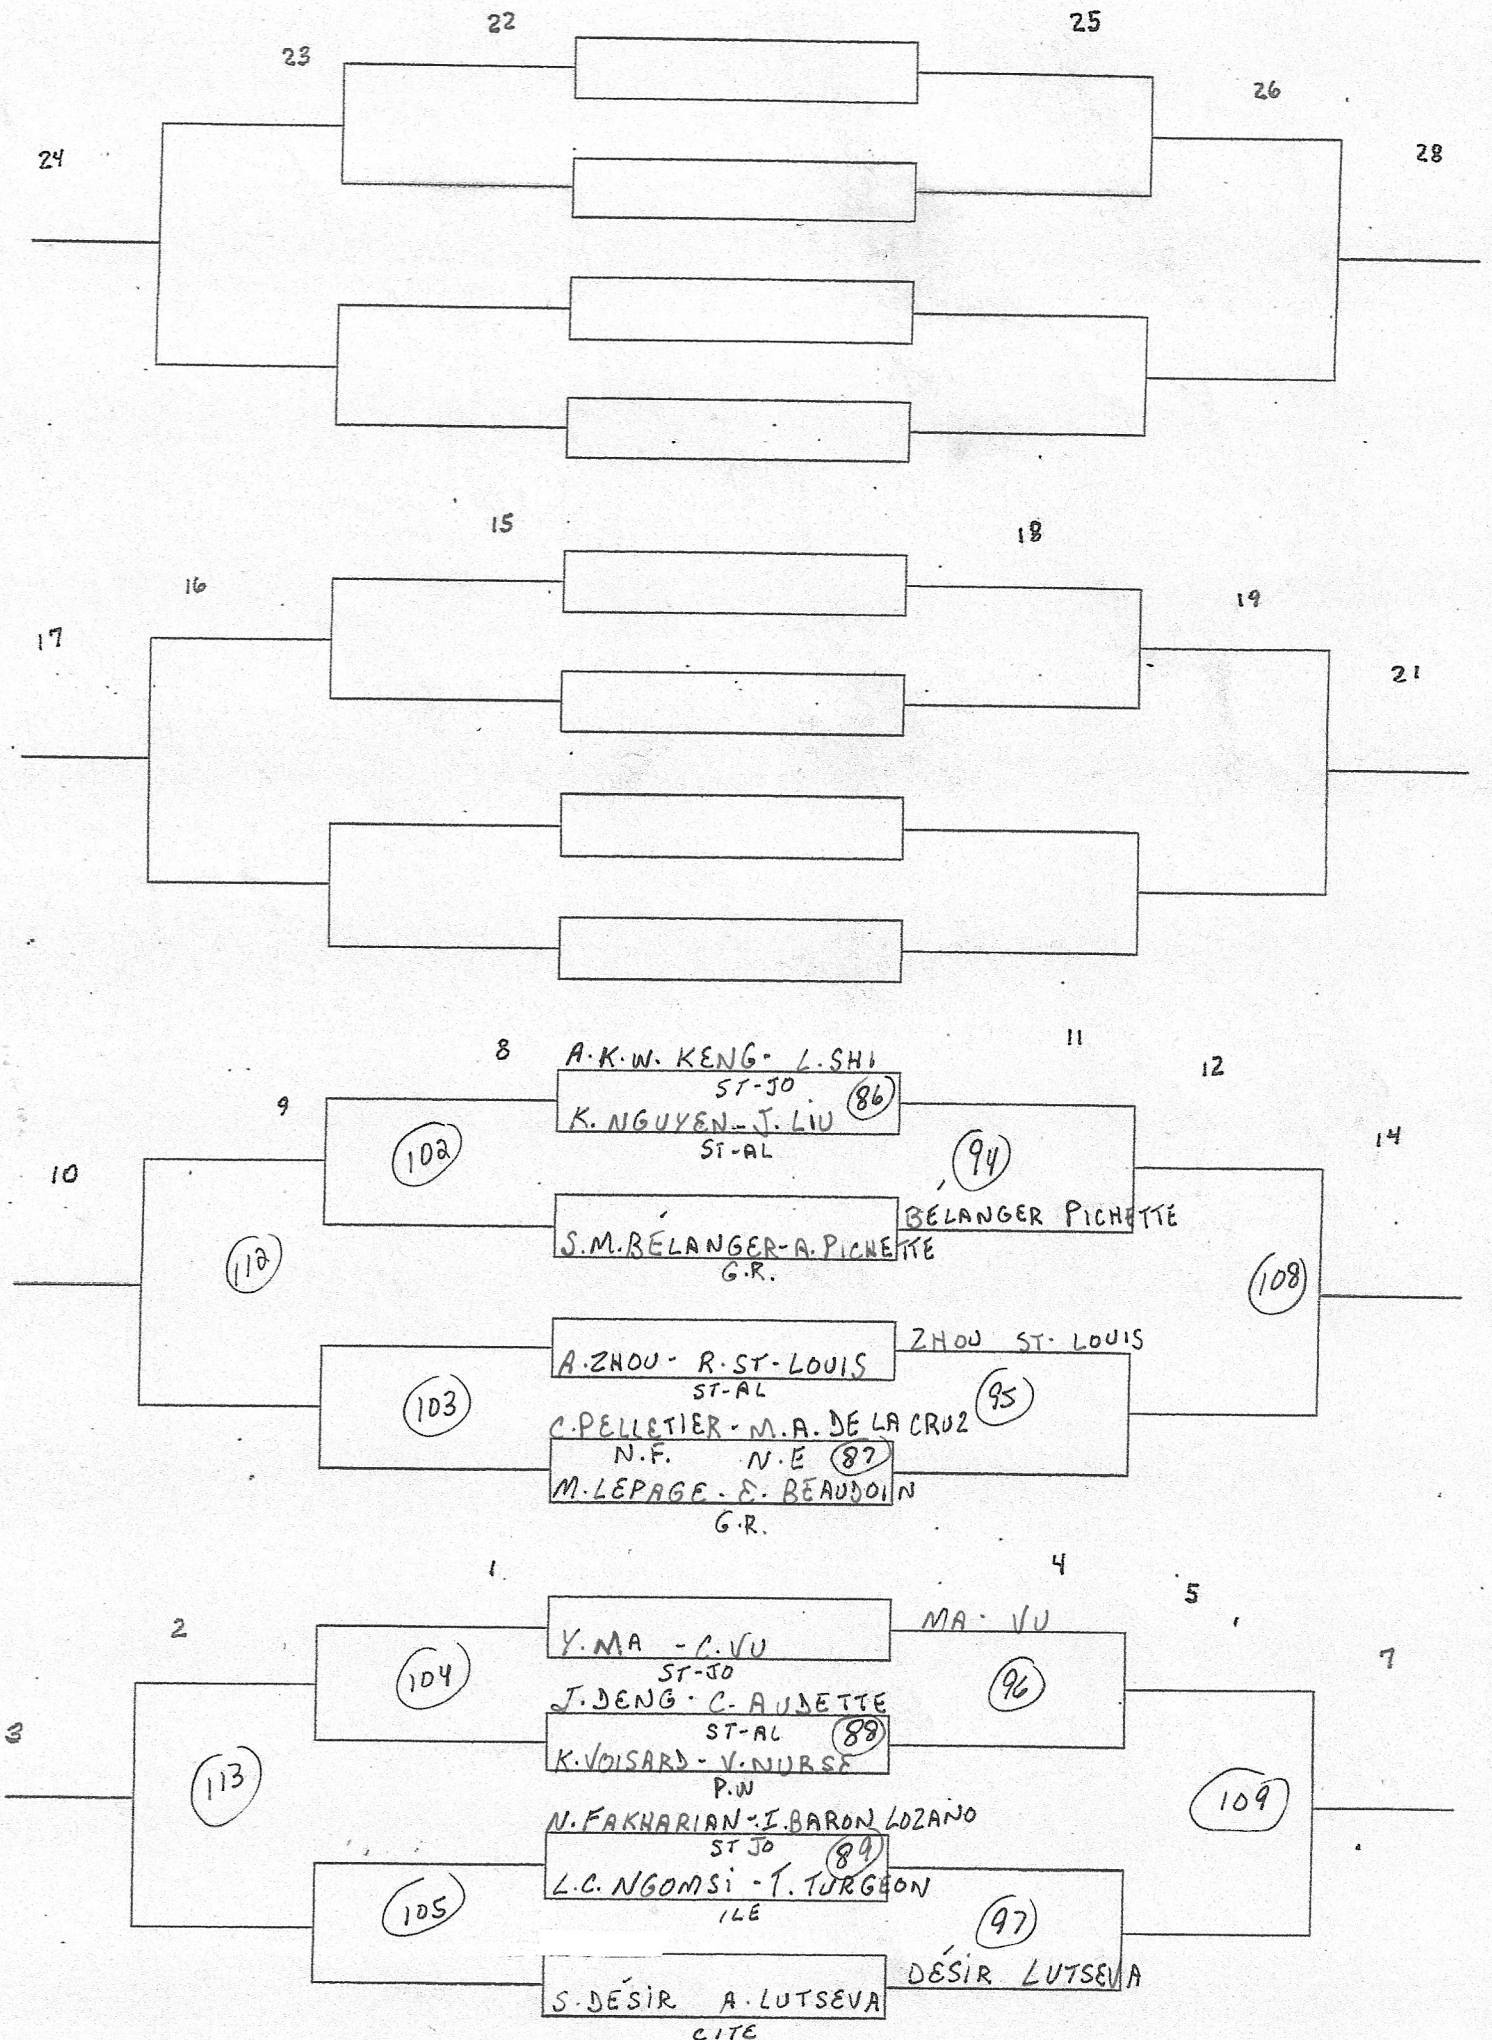 22
25
23
26
24
28
15
18
16
19
17
21
8
A.K.W. KENG - L. SHI
11
ST-JO
86
12
9
K. NGUYEN - J. LIU
ST-AL
102
94
14
10
BÉLANGER PICHETTE
S.M. BÉLANGER - A. PICHETTE
G.R.
112
108
ZHOU ST-LOUIS
A. ZHOU - R. ST-LOUIS
ST-AL
103
95
C. PELLETIER - M.A. DE LA CRUZ
N.F. N.E 87
M. LEPAGE - E. BEAUDOIN
G.R.
1
4
5
2
MA - VU
Y. MA - C. VU
ST-JO
7
104
96
J. DENG - C. AUDETTE
ST-AL 88
3
K. VOISARD - V. NURSE
P.W
113
109
N. FAKHARIAN - I. BARON LOZANO
ST JO 89
L.C. NGOMSI - T. TURGEON
ILE
105
97
DÉSIR LUTSEVA
S. DÉSIR A. LUTSEVA
CITE